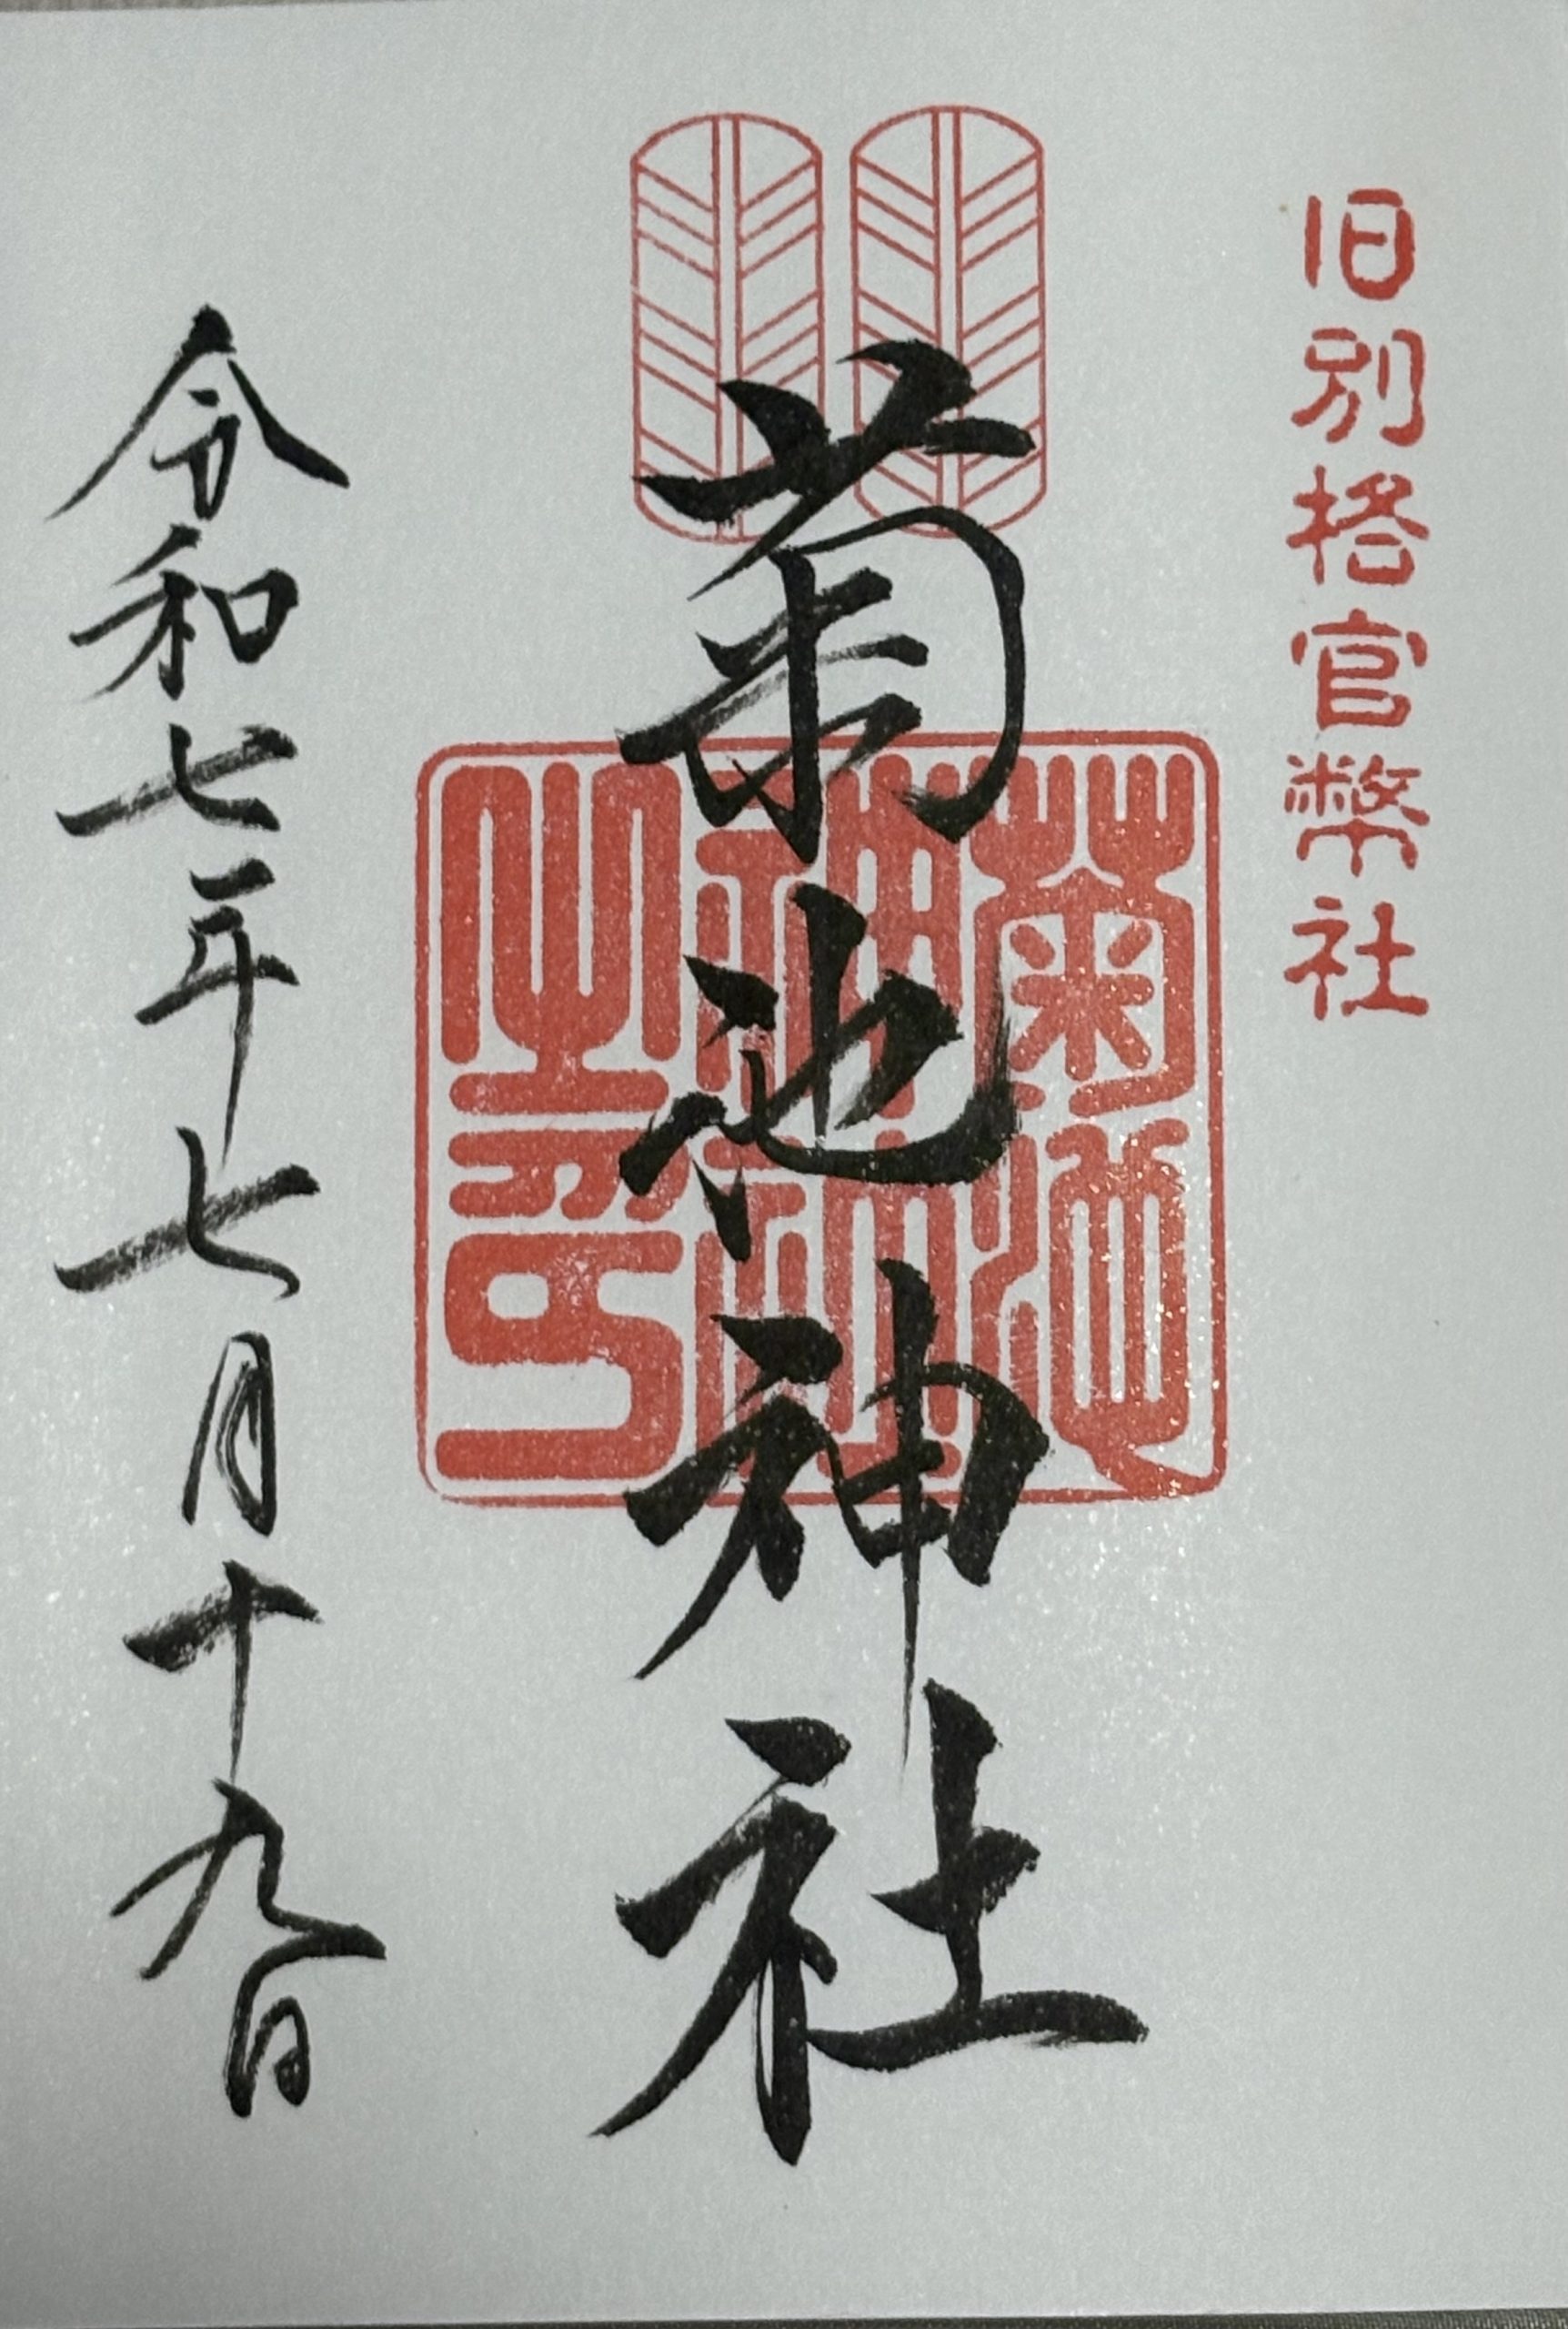 旧別格官幣社
菊池神社
菊池
神社
之印
令和七年七月十九日